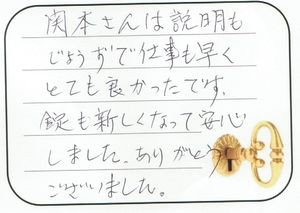 関本さんは説明も
じょうずで仕事も早く
とても良かったです。
錠も新しくなって安心
しました。ありがとう
ございました。